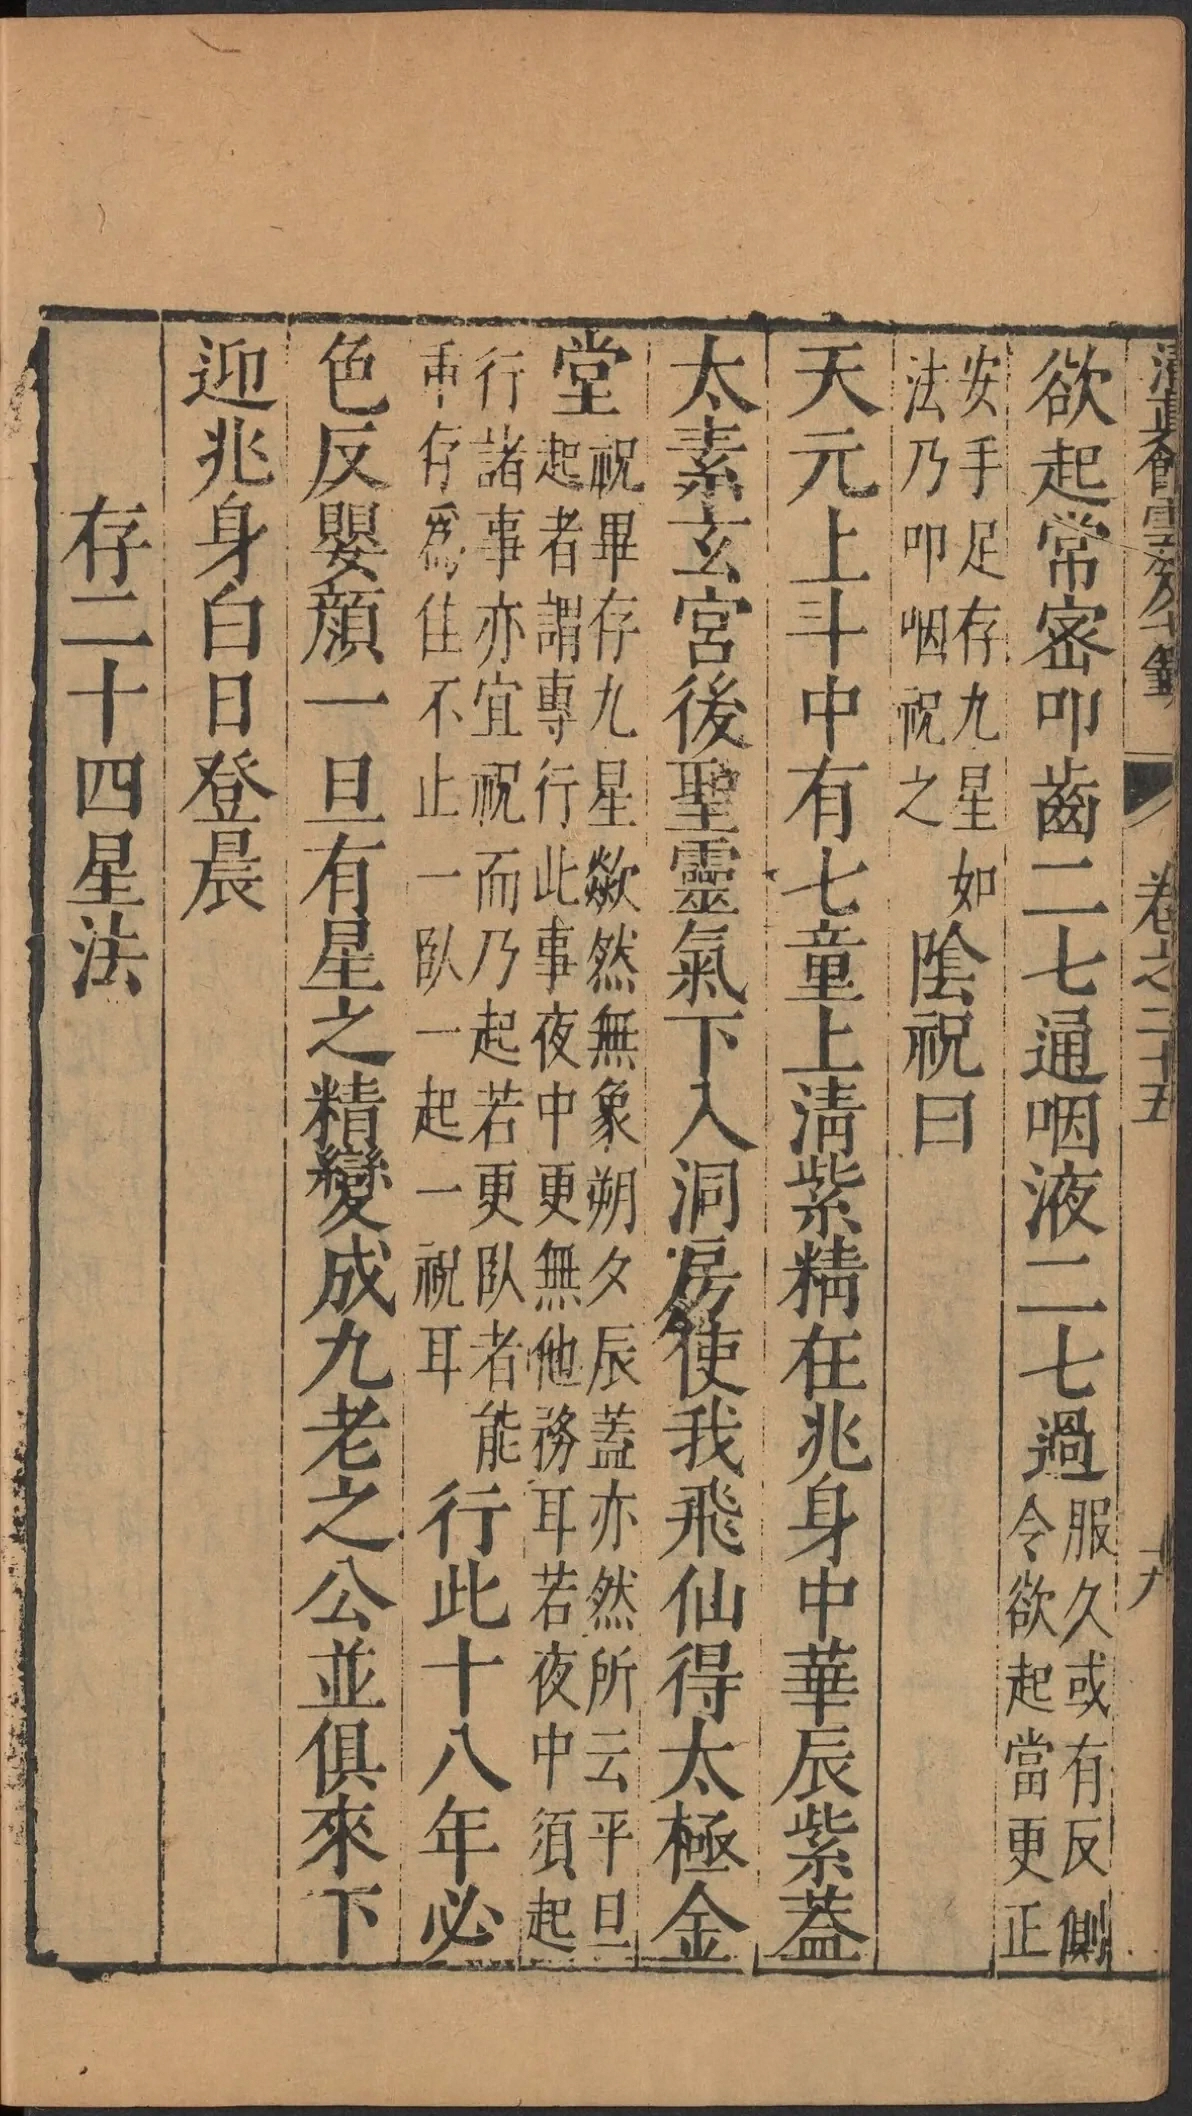 卷之二十五
欲起常密叩齒二七通咽液二七過服久或有反側令欲起當更正
安手足存九星如法乃叩咽祝之陰祝曰
天元上斗中有七童上淸紫精在兆身中華辰紫蓋
太素玄宮後聖靈氣下入洞房使我飛仙得太極金
堂祝畢存九星歘然無象朔夕辰蓋亦然所云平旦起者謂專行此事夜中更無他務耳若夜中須起
行諸事亦宜祝而乃起若更臥者能重存爲佳不止一臥一起一祝耳行此十八年必
色反嬰顏一旦有星之精變成九老之公並俱來下
迎兆身白日登晨
存二十四星法